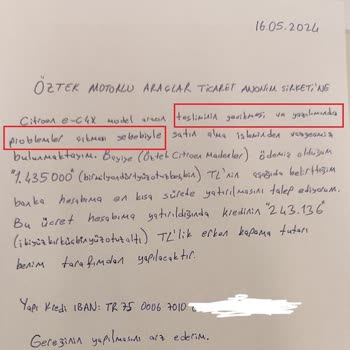 16.05.2024
ÖZTEK MOTORLU ARAÇLAR TİCARET ANONİM ŞİRKETİ'NE
Citroen e-C4X model aracın teslimin gecikmesi ve yazılımında
problemler çıkması sebebiyle satın alma isteminden vazgeçmiş
bulunmaktayım. Bayiye (Öztek Citroen Maslak) ödemiş olduğum
"1.435.000" (birmilyondörtyüzotuzbeşbin) TL'nin aşağıda belirttiğim
banka hesabıma en kısa sürede yatırılmasını talep ediyorum.
Bu ücret hesabıma yatırıldığında kredinin "243.136"
(ikiyüzkırküçbinyüzotuzaltı) TL'lik erken kapama tutarı
benim tarafımdan yapılacaktır.
Yapı Kredi IBAN: TR 75 0006 7010
Gereğinin yapılmasını arz ederim.